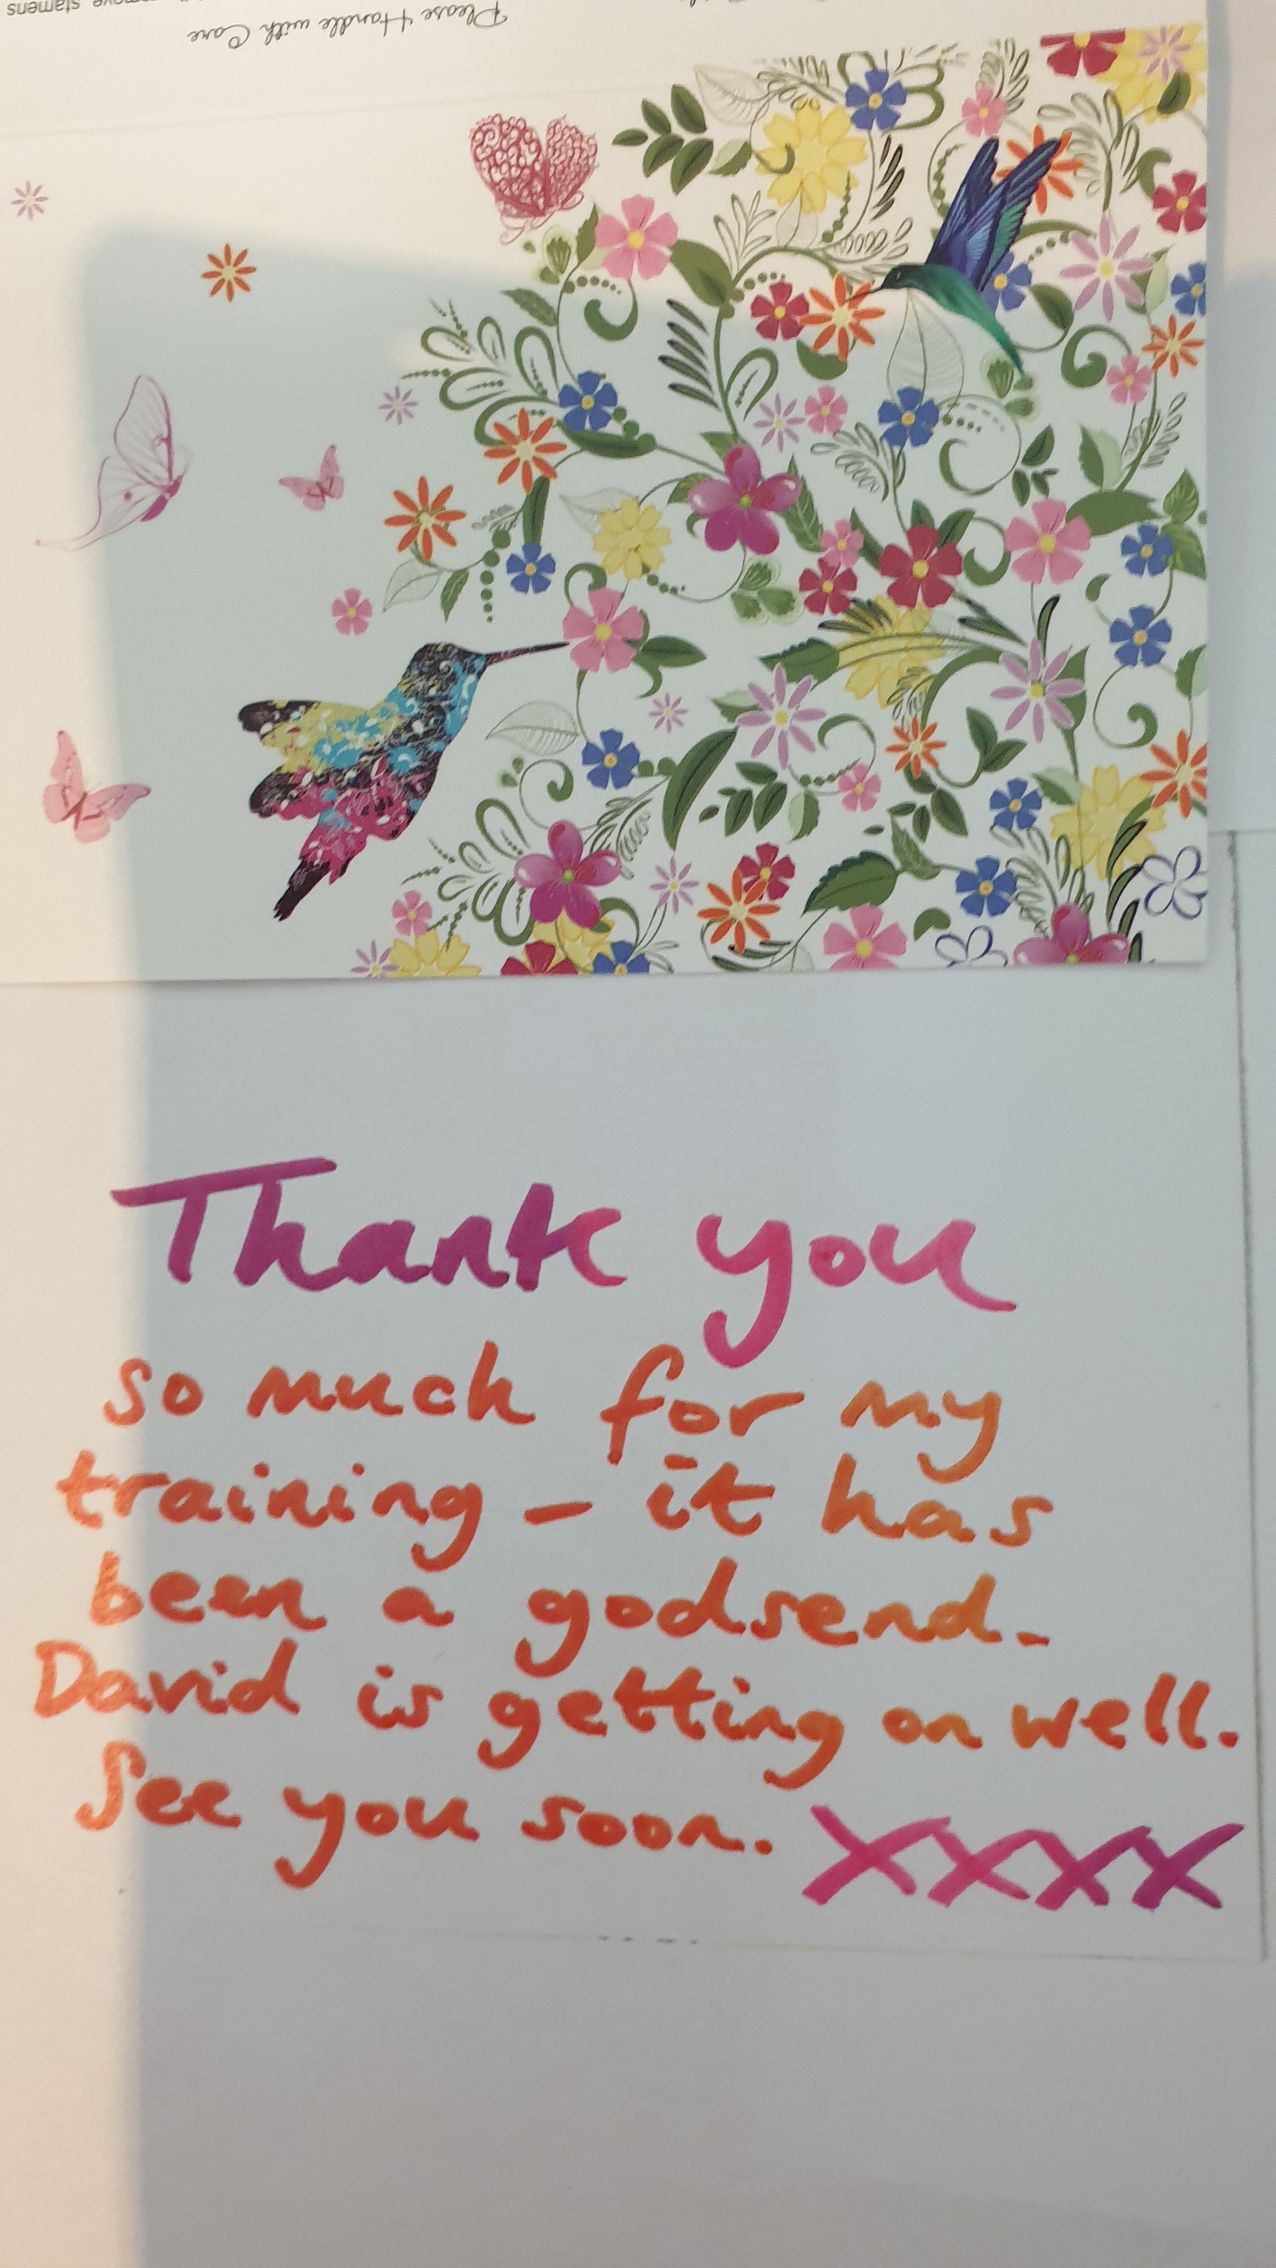 stamens
Please Handle with Care
Thank you
so much for my
training - it has
been a godsend.
David is getting on well.
See you soon. xxxx